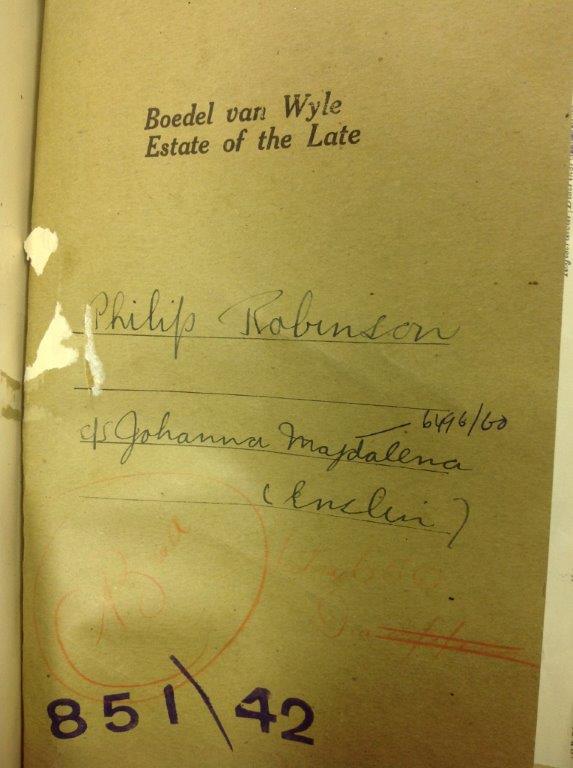 Boedel van Wyle
Estate of the Late
Philip Robinson
6496/60
c/s Johanna Magdalena
(Enslin)
851\42